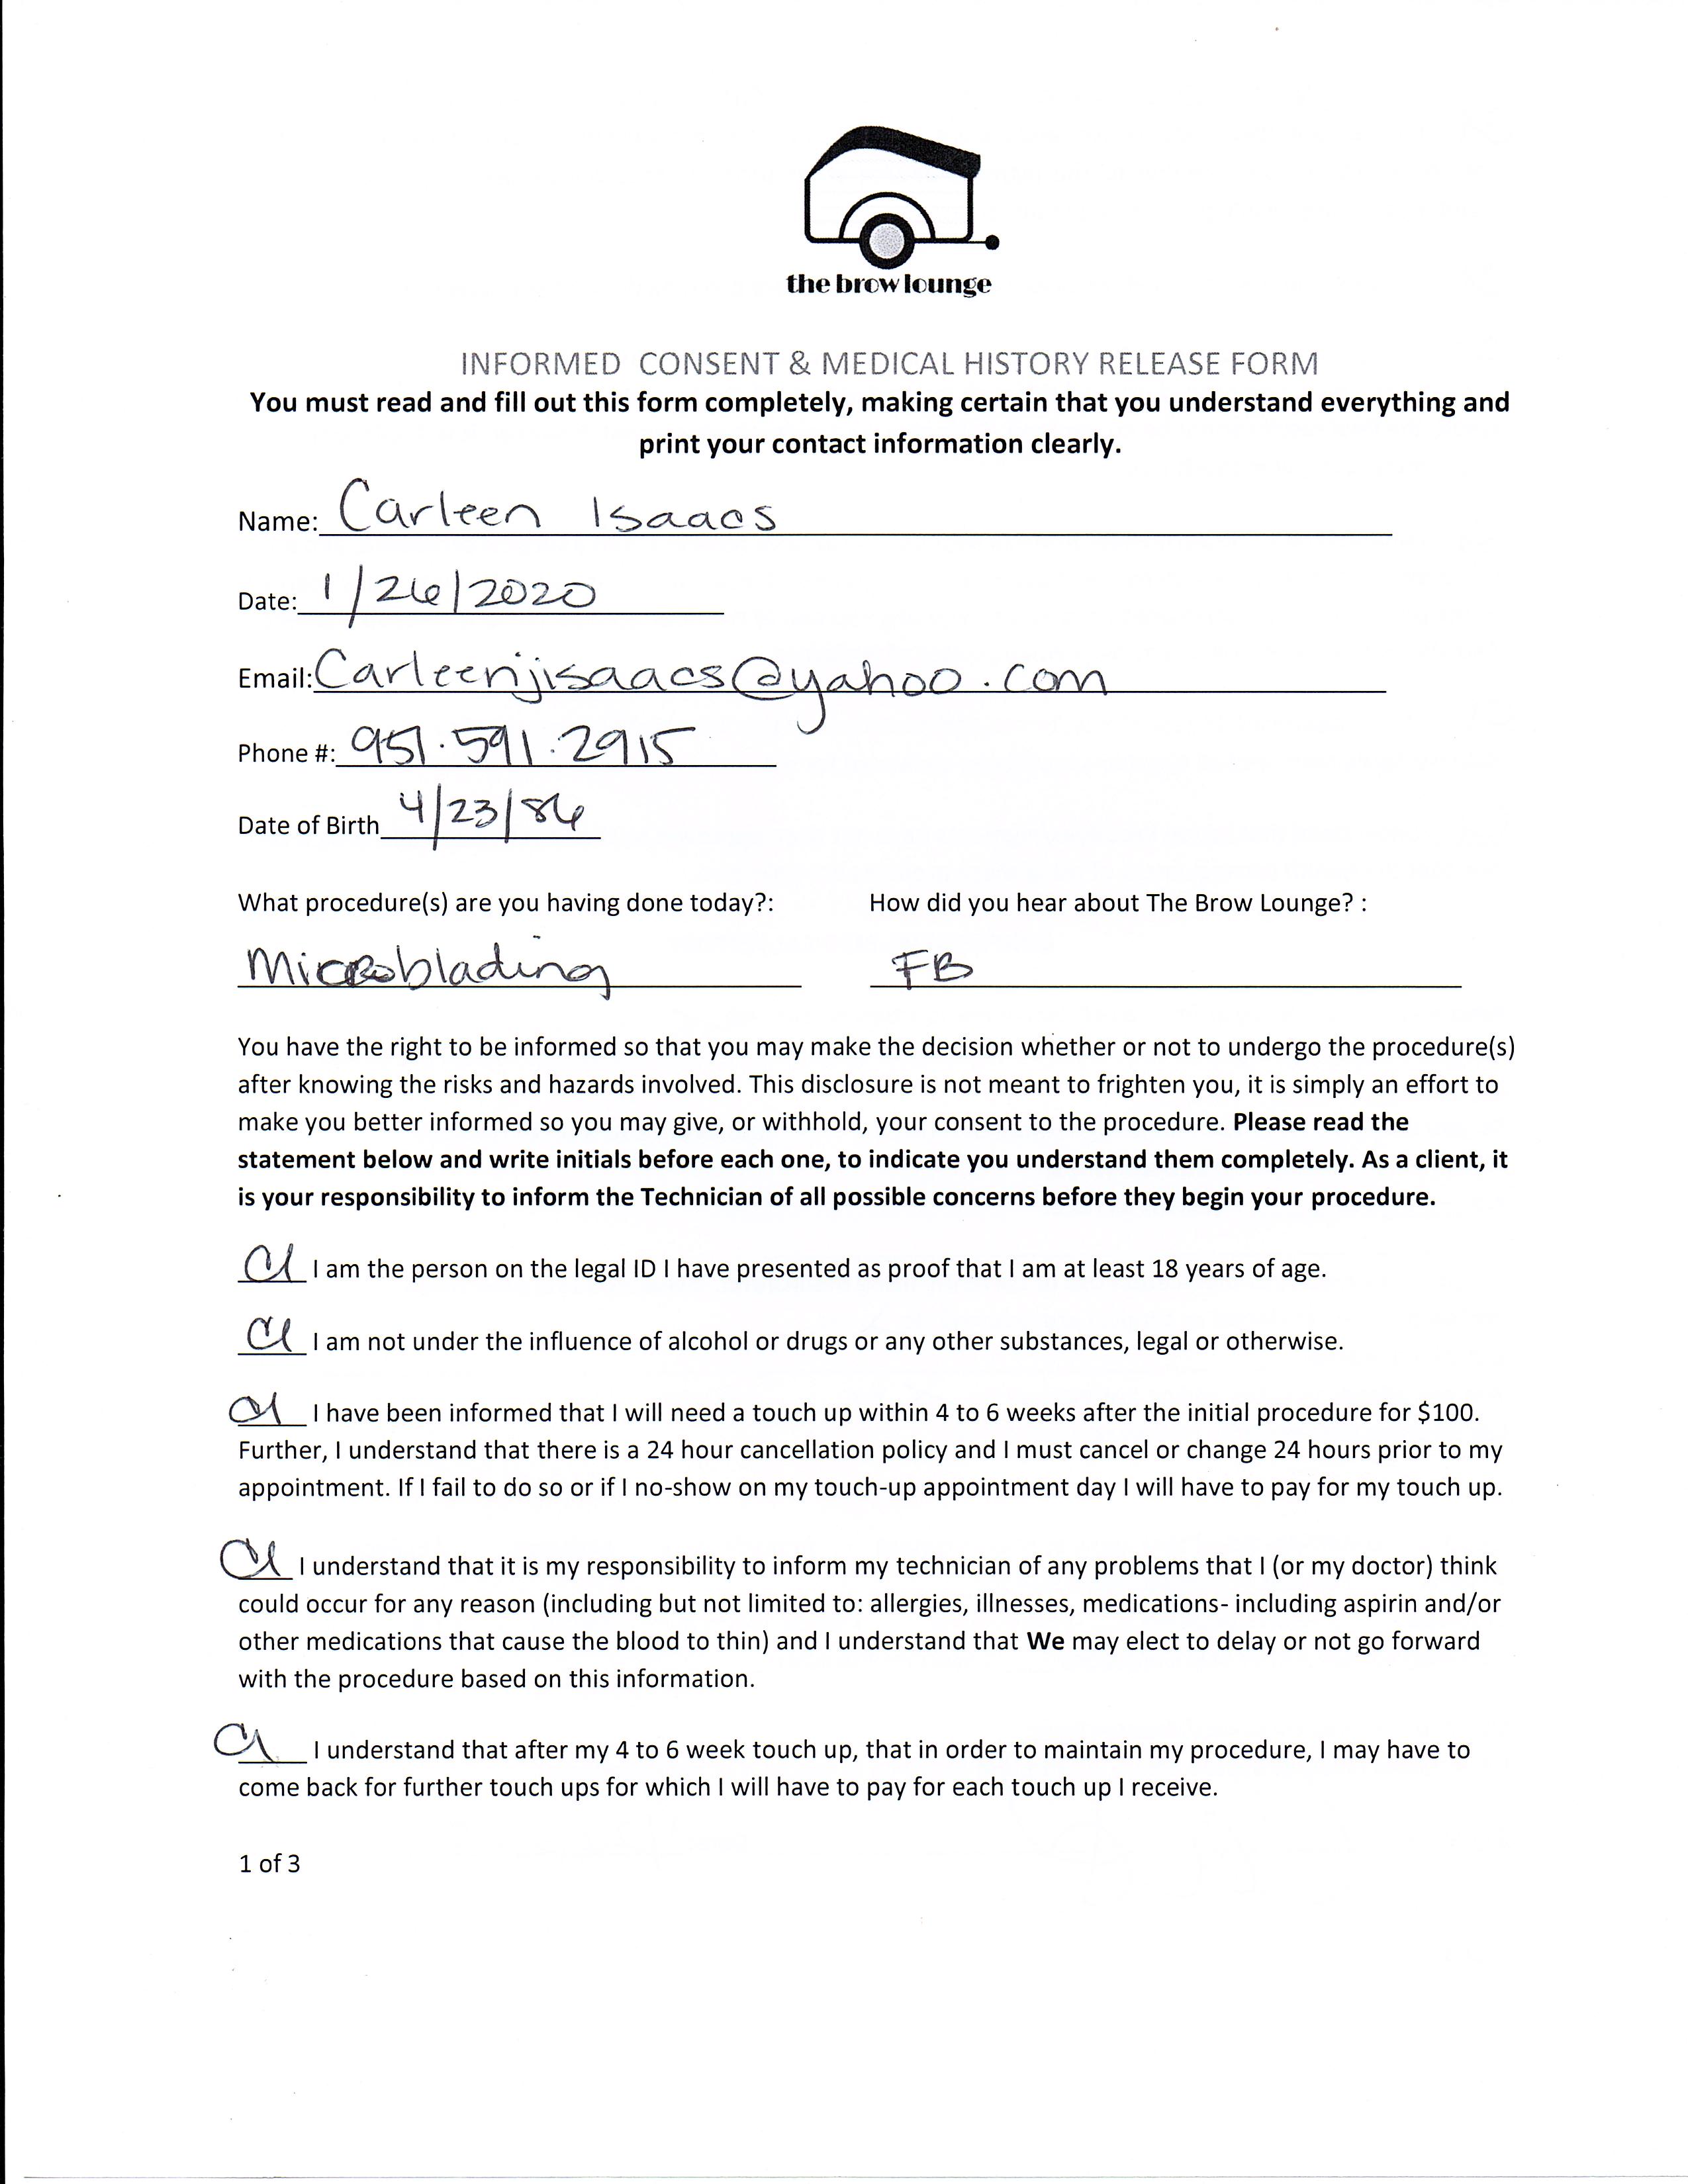 the brow lounge
INFORMED CONSENT & MEDICAL HISTORY RELEASE FORM
You must read and fill out this form completely, making certain that you understand everything and
print your contact information clearly.
Name: Carleen Isaacs
Date: 1/26/2020
Email: Carleenjisaacs@yahoo.com
Phone #: 951.591.2915
Date of Birth 4/23/86
What procedure(s) are you having done today?: How did you hear about The Brow Lounge? :
Microblading FB
You have the right to be informed so that you may make the decision whether or not to undergo the procedure(s)
after knowing the risks and hazards involved. This disclosure is not meant to frighten you, it is simply an effort to
make you better informed so you may give, or withhold, your consent to the procedure. Please read the
statement below and write initials before each one, to indicate you understand them completely. As a client, it
is your responsibility to inform the Technician of all possible concerns before they begin your procedure.
CI I am the person on the legal ID I have presented as proof that I am at least 18 years of age.
CI I am not under the influence of alcohol or drugs or any other substances, legal or otherwise.
CI I have been informed that I will need a touch up within 4 to 6 weeks after the initial procedure for $100.
Further, I understand that there is a 24 hour cancellation policy and I must cancel or change 24 hours prior to my
appointment. If I fail to do so or if I no-show on my touch-up appointment day I will have to pay for my touch up.
CI I understand that it is my responsibility to inform my technician of any problems that I (or my doctor) think
could occur for any reason (including but not limited to: allergies, illnesses, medications- including aspirin and/or
other medications that cause the blood to thin) and I understand that We may elect to delay or not go forward
with the procedure based on this information.
CI I understand that after my 4 to 6 week touch up, that in order to maintain my procedure, I may have to
come back for further touch ups for which I will have to pay for each touch up I receive.
1 of 3